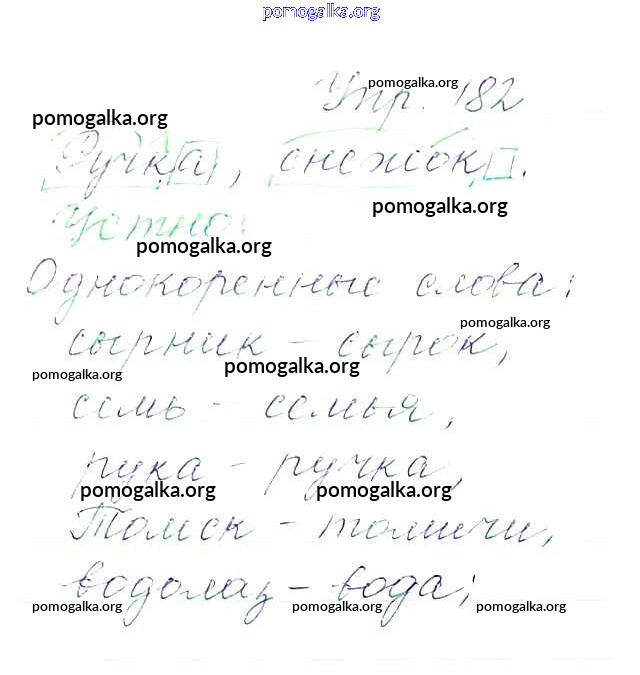 pomogalka.org
Упр. 182
pomogalka.org
pomogalka.org
Ручка, снежок.
pomogalka.org
Устно:
pomogalka.org
Однокоренные слова:
pomogalka.org
сырник - сырок,
pomogalka.org
pomogalka.org
семь - семья,
рука - ручка,
pomogalka.org pomogalka.org
Томск - томичи,
водолаз - вода;
pomogalka.org pomogalka.org pomogalka.org